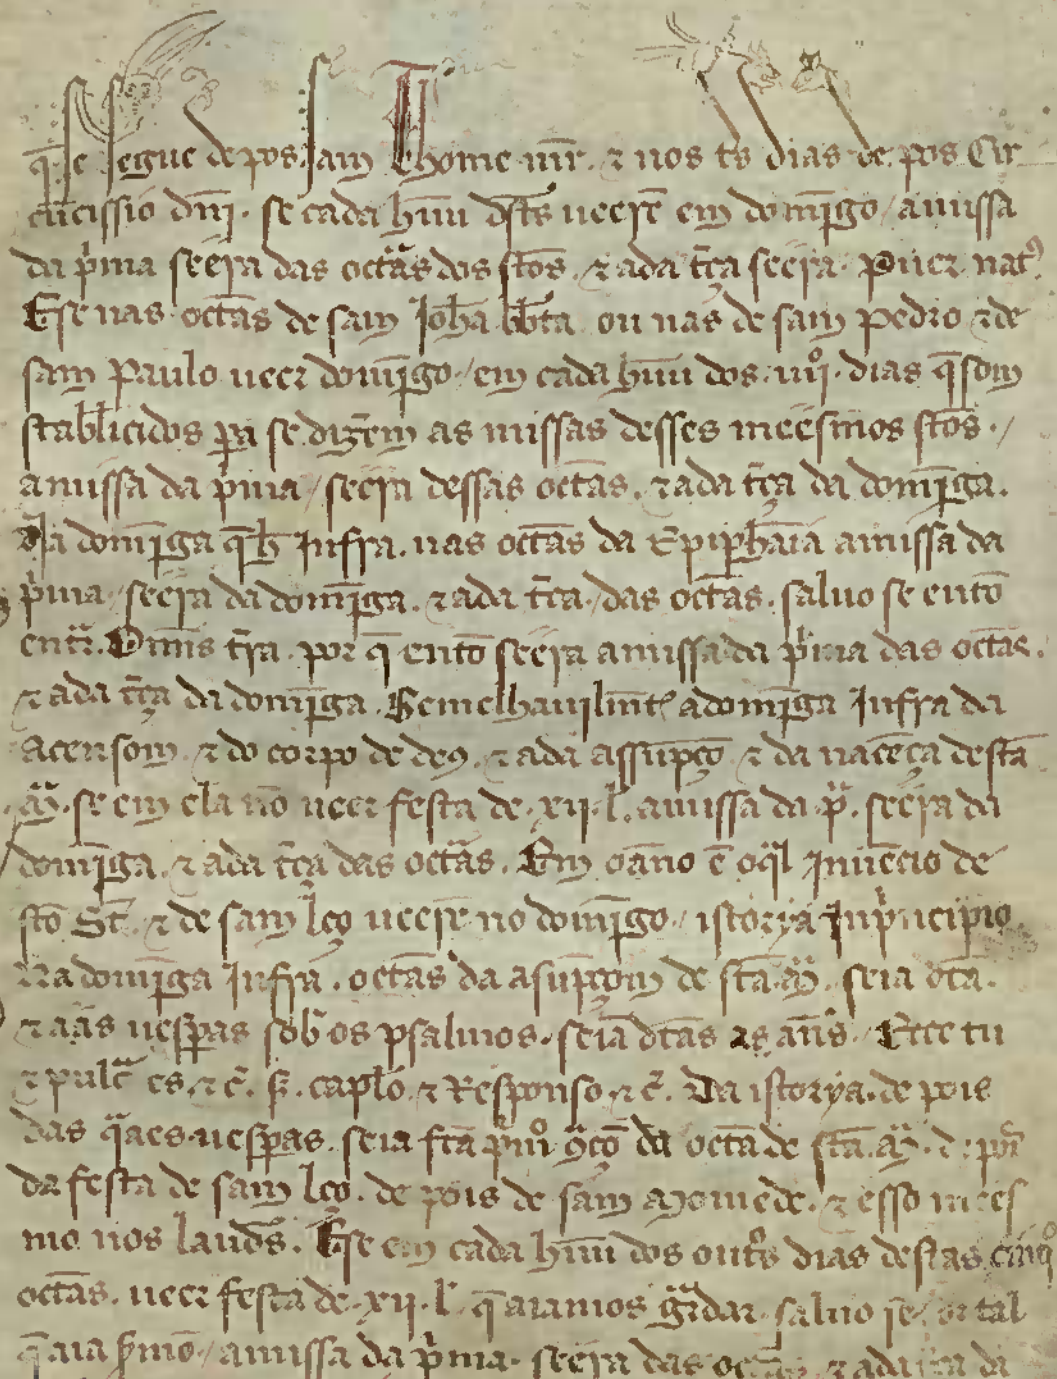 q̄ se segue depos sam Thome mr̄. ⁊ nos ts̄ dias de pos Cir
cūcissio dn̄j. se cada hūu dst̄s ueer̄e em dom̄īgo / amissa
da p̾ma seera das octãs dos st̄os. ⁊ ada t̄ça seera. Puer nat᷒.
E se nas octās de sam Joh̄a bb̄ta ou nas de sam pedro ⁊ de
sam paulo ueer dom̄īgo / em cada hūu dos .iiij. dias q̄ som
stabl̄icidos pa se diz̄em as missas desses meesmos st̄os. /
amissa da p̾ma / seera dessas octās. ⁊ ada t̄ça da dom̄īga.
Na dom̄īga q̄ h̄ Jnfra. nas octās da Epiph̄aia amissa da
p̾ma / seera da dom̄īga. ⁊ ada t̄ça / das octās. saluo se entō
ent̃r. Omīs t̄ra. por q̄ entō seera amissa da p̾ma das octās.
⁊ ada t̄ça da dom̄īga. Semelhauilmēt adom̄īga Jnfra da
Acensom. ⁊ do corpo de de9. ⁊ ada assūpçō ⁊ da nacēça de st̄a
.M̃. se em ela nō ueer festa de .xij. l̄. amissa da .p̃. seera da
dom̄īga. ⁊ ada t̄ça das octãs. Em oāno ē oq̃l Jnuēcio de
st̄o St̄. ⁊ de sam l̄ço ueer̄e no dom̄īgo / istorya Jnp̾ncipio.
Na dom̄īga Jnfra. octās da asūpçom de st̄a M̃. seia dc̄ta.
⁊ aas uesp̄as sob̾ os psalmos. seiā dc̄tas as an̄s. Ecce tu
⁊ pulc̃ es. ⁊ c̾. capl̄o. ⁊ Responso. ⁊ c̾. Da istorya. de pois
das q̃aes uesp̄as. seia fc̄ta p̾m̊ da octā de st̄a. M̃.
da festa de sam l̄ço. de pois de sam Mamede. ⁊ esso mees
mo nos laudēs. E se em cada hūu dos out̾s dias destas cinq̊
octās. ueer festa de .xij. l̄. q̄ aiamos g̃rdar. saluo se for tal
q̄ aia s̄mō / amissa da p̾ma. seera das octās. ⁊ ada t̄ça da